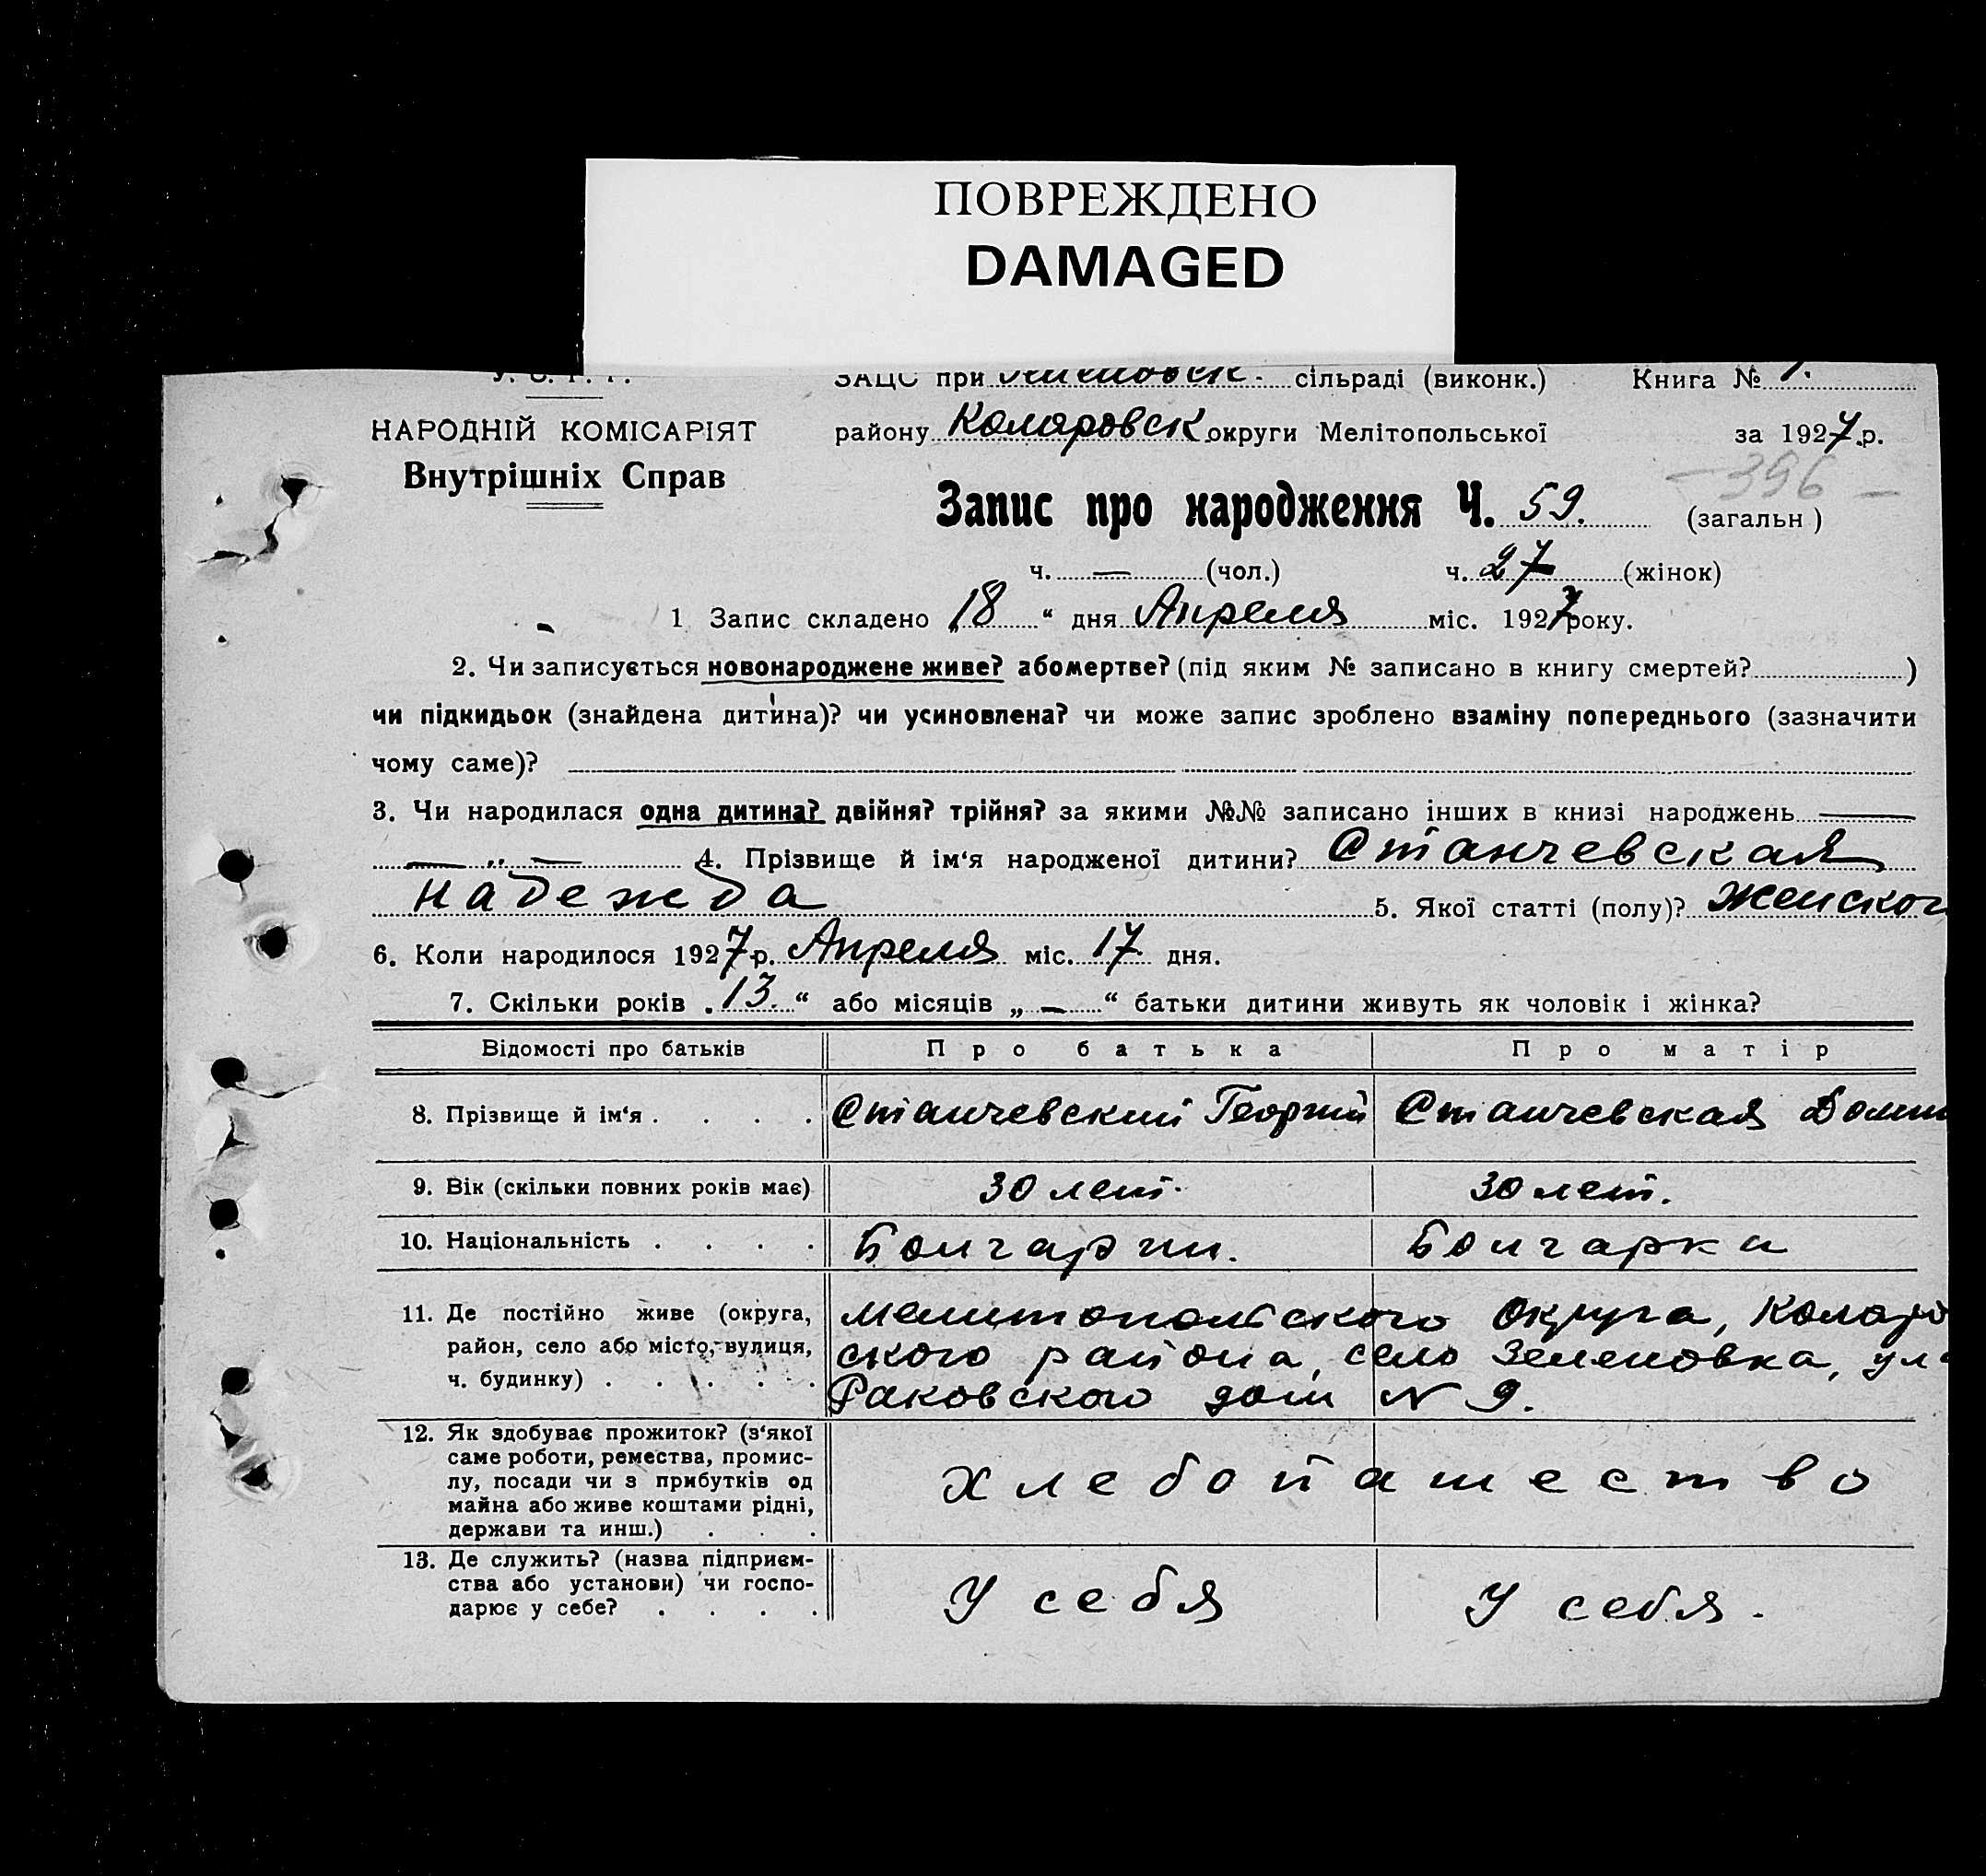 ПОВРЕЖДЕНО
DAMAGED
У. С. Р. Р.
ЗАЦС при сільраді (виконк.) Книга № 1.
НАРОДНІЙ КОМІСАРІЯТ
Внутрішніх Справ
району Коларовск округи Мелітопольської за 1927 р.
396
Запис про народження Ч. 59. (загальн)
ч. — (чол.) ч. 27 (жінок)
1 Запис складено „18“ дня Апреля міс. 1927 року.
2. Чи записується новонароджене живе? або мертве? (під яким № записано в книгу смертей? )
чи підкидьок (знайдена дитина)? чи усиновлена? чи може запис зроблено взаміну попереднього (зазначити
чому саме)?
3. Чи народилася одна дитина? двійня? трійня? за якими №№ записано інших в книзі народжень —
— „ — 4. Прізвище й ім‘я народженої дитини? Станчевская
Надежда 5. Якої статті (полу)? Женског
6. Коли народилося 1927 р. Апреля міс. 17 дня.
7. Скільки років „13.“ або місяців „—“ батьки дитини живуть як чоловік і жінка?
Відомості про батьків Про батька Про матір
8. Прізвище й ім‘я . . . . Станчевский Георгий Станчевская
9. Вік (скільки повних років має) 30 лет. 30 лет.
10. Національність . . . . Болгарин. Болгарка
11. Де постійно живе (округа,
район, село або місто, вулиця,
ч. будинку) . . . . .
Мелитопольского Округа, Колар
ского района, село Зеленовка, ул
Раковского дом N 9.
12. Як здобуває прожиток? (з‘якої
саме роботи, ремества, промис-
лу, посади чи з прибутків од
майна або живе коштами рідні,
держави та инш.) . . .
Хлебопашество
13. Де служить? (назва підприєм-
ства або установи) чи госпо-
дарює у себе? . . . .
У себя У себя.